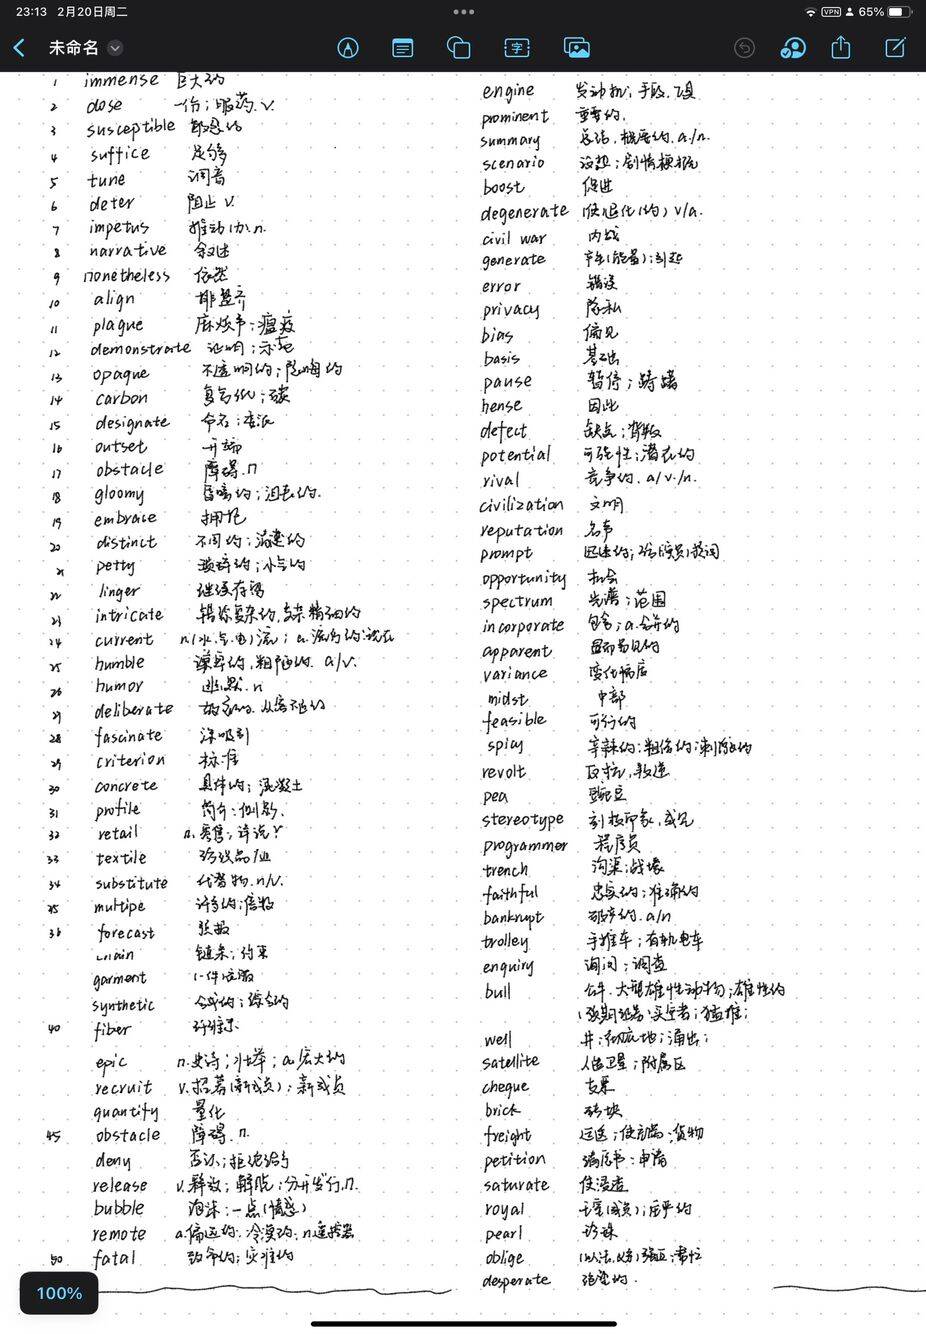 23:13 2月20日周二
VPN 65%
未命名
字
1 immense 巨大的
2 dose 一份；服药.v.
3 susceptible 敏感的
4 suffice 足够
5 tune 调音
6 deter 阻止 v.
7 impetus 推动力.n.
8 narrative 叙述
9 nonetheless 依然
10 align 排整齐
11 plague 麻烦事；瘟疫
12 demonstrate 证明；示范
13 opaque 不透明的；隐晦的
14 carbon 复写纸；碳
15 designate 命名；委派
16 outset 开端
17 obstacle 障碍.n
18 gloomy 昏暗的；沮丧的.
19 embrace 拥抱
20 distinct 不同的；清楚的
21 petty 琐碎的；小气的
22 linger 继续存留
23 intricate 错综复杂的,精细的
24 current n.(水,气,电)流；a.流行的;现在
25 humble 谦卑的,粗陋的. a/v.
26 humor 幽默.n
27 deliberate 故意的.从容不迫的
28 fascinate 深吸引
29 criterion 标准
30 concrete 具体的；混凝土
31 profile 简介；侧影.
32 retail n.零售；详说v
33 textile 纺织品/业
34 substitute 代替物.n/v.
35 multipe 许多的；倍数
36 forecast 预报
chain 链条；约束
garment 一件衣服
synthetic 合成的；综合的
40 fiber 纤维
epic n.史诗；壮举；a.宏大的
recruit v.招募(新成员)；新成员
quantify 量化
45 obstacle 障碍.n.
deny 否认；拒绝给予
release v.释放；解脱；公开发行.n.
bubble 泡沫；一点(情感)
remote a.偏远的.冷漠的.n.遥控器
50 fatal 致命的；灾难的
engine 发动机；手段.工具
prominent 重要的.
summary 总结.概要的.a./n.
scenario 设想；剧情梗概
boost 促进
degenerate (使)退化(的) v/a.
civil war 内战
generate 产生(能量)；引起
error 错误
privacy 隐私
bias 偏见
basis 基础
pause 暂停；踌躇
hense 因此
defect 缺点；背叛
potential 可能性；潜在的
rival 竞争的.a/v./n.
civilization 文明
reputation 名声
prompt 迅速的；给(演员)提词
opportunity 机会
spectrum 光谱；范围
incorporate 包含；a.合并的
apparent 显而易见的
variance 变化幅度
midst 中部
feasible 可行的
spicy 辛辣的；粗俗的;刺激的
revolt 反抗,叛逆
pea 豌豆
stereotype 刻板印象,成见
programmer 程序员
trench 沟渠;战壕
faithful 忠实的；准确的
bankrupt 破产的.a/n
trolley 手推车；有轨电车
enquiry 询问；调查
bull 公牛.大型雄性动物；雄性的
well 井；彻底地；涌出；
satellite 人造卫星；附属区
cheque 支票
brick 砖块
freight 运送；货物
petition 请愿书；申请
saturate 使浸透
royal 王室(成员)；庄严的
pearl 珍珠
oblige (以法,义务)强迫；帮忙
desperate 绝望的.
100%